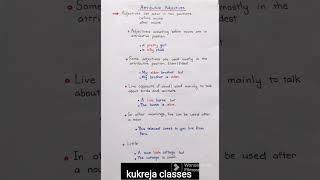 Attributive Adjectives
Adjectives can occur in two positions
before nouns
after nouns
Adjectives occurring before nouns are in
attributive position.
a pretty girl
a silly child
Some adjectives are used mostly in the
attributive position. Elder/Eldest
My elder brother but
My brother is older.
Live (opposite of dead) used mainly to talk
about birds and animals.
A live horse but
The horse is alive.
In other meanings, live can be used after
a noun
This telecast comes to you live from
Little
A nice little cottage but
The cottage is small.
Live
about
mainly to talk
In o
a n
used after
kukreja classes